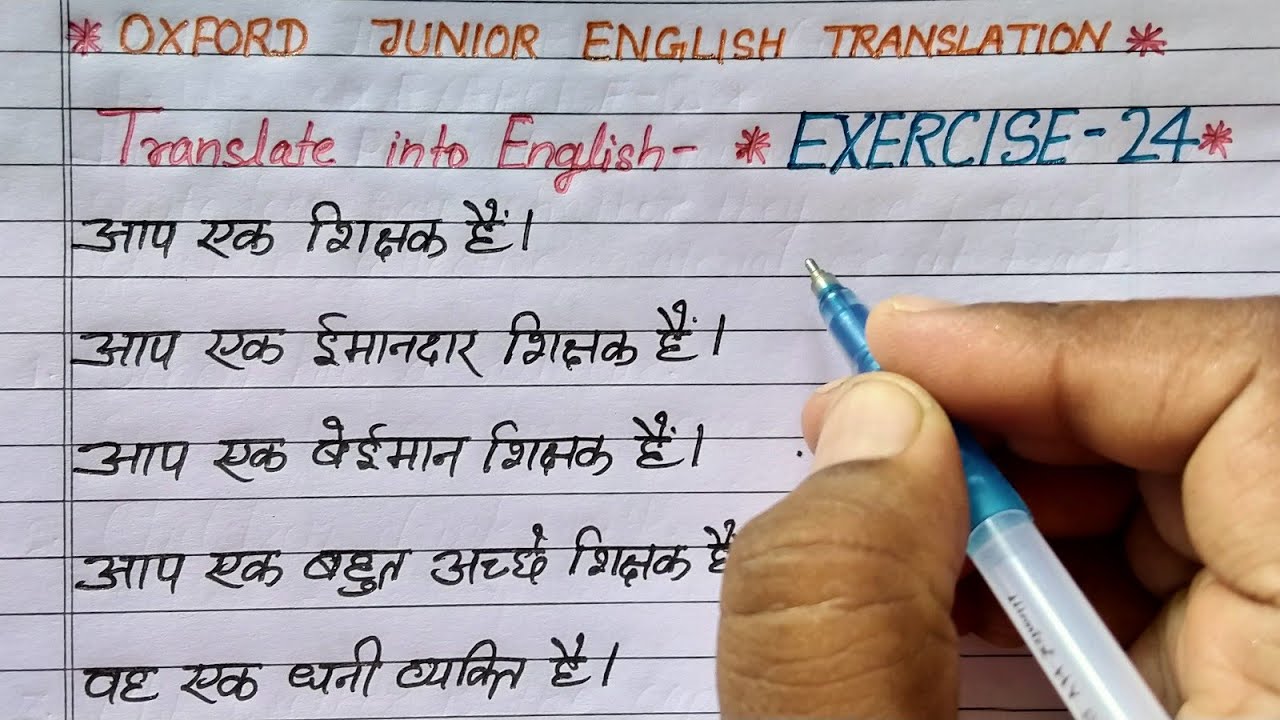 * OXFORD JUNIOR ENGLISH TRANSLATION *
Translate into English- * EXERCISE-24 *
आप एक शिक्षक हैं।
आप एक ईमानदार शिक्षक हैं।
आप एक बेईमान शिक्षक हैं।
आप एक बहुत अच्छे शिक्षक हैं
वह एक धनी व्यक्ति है।